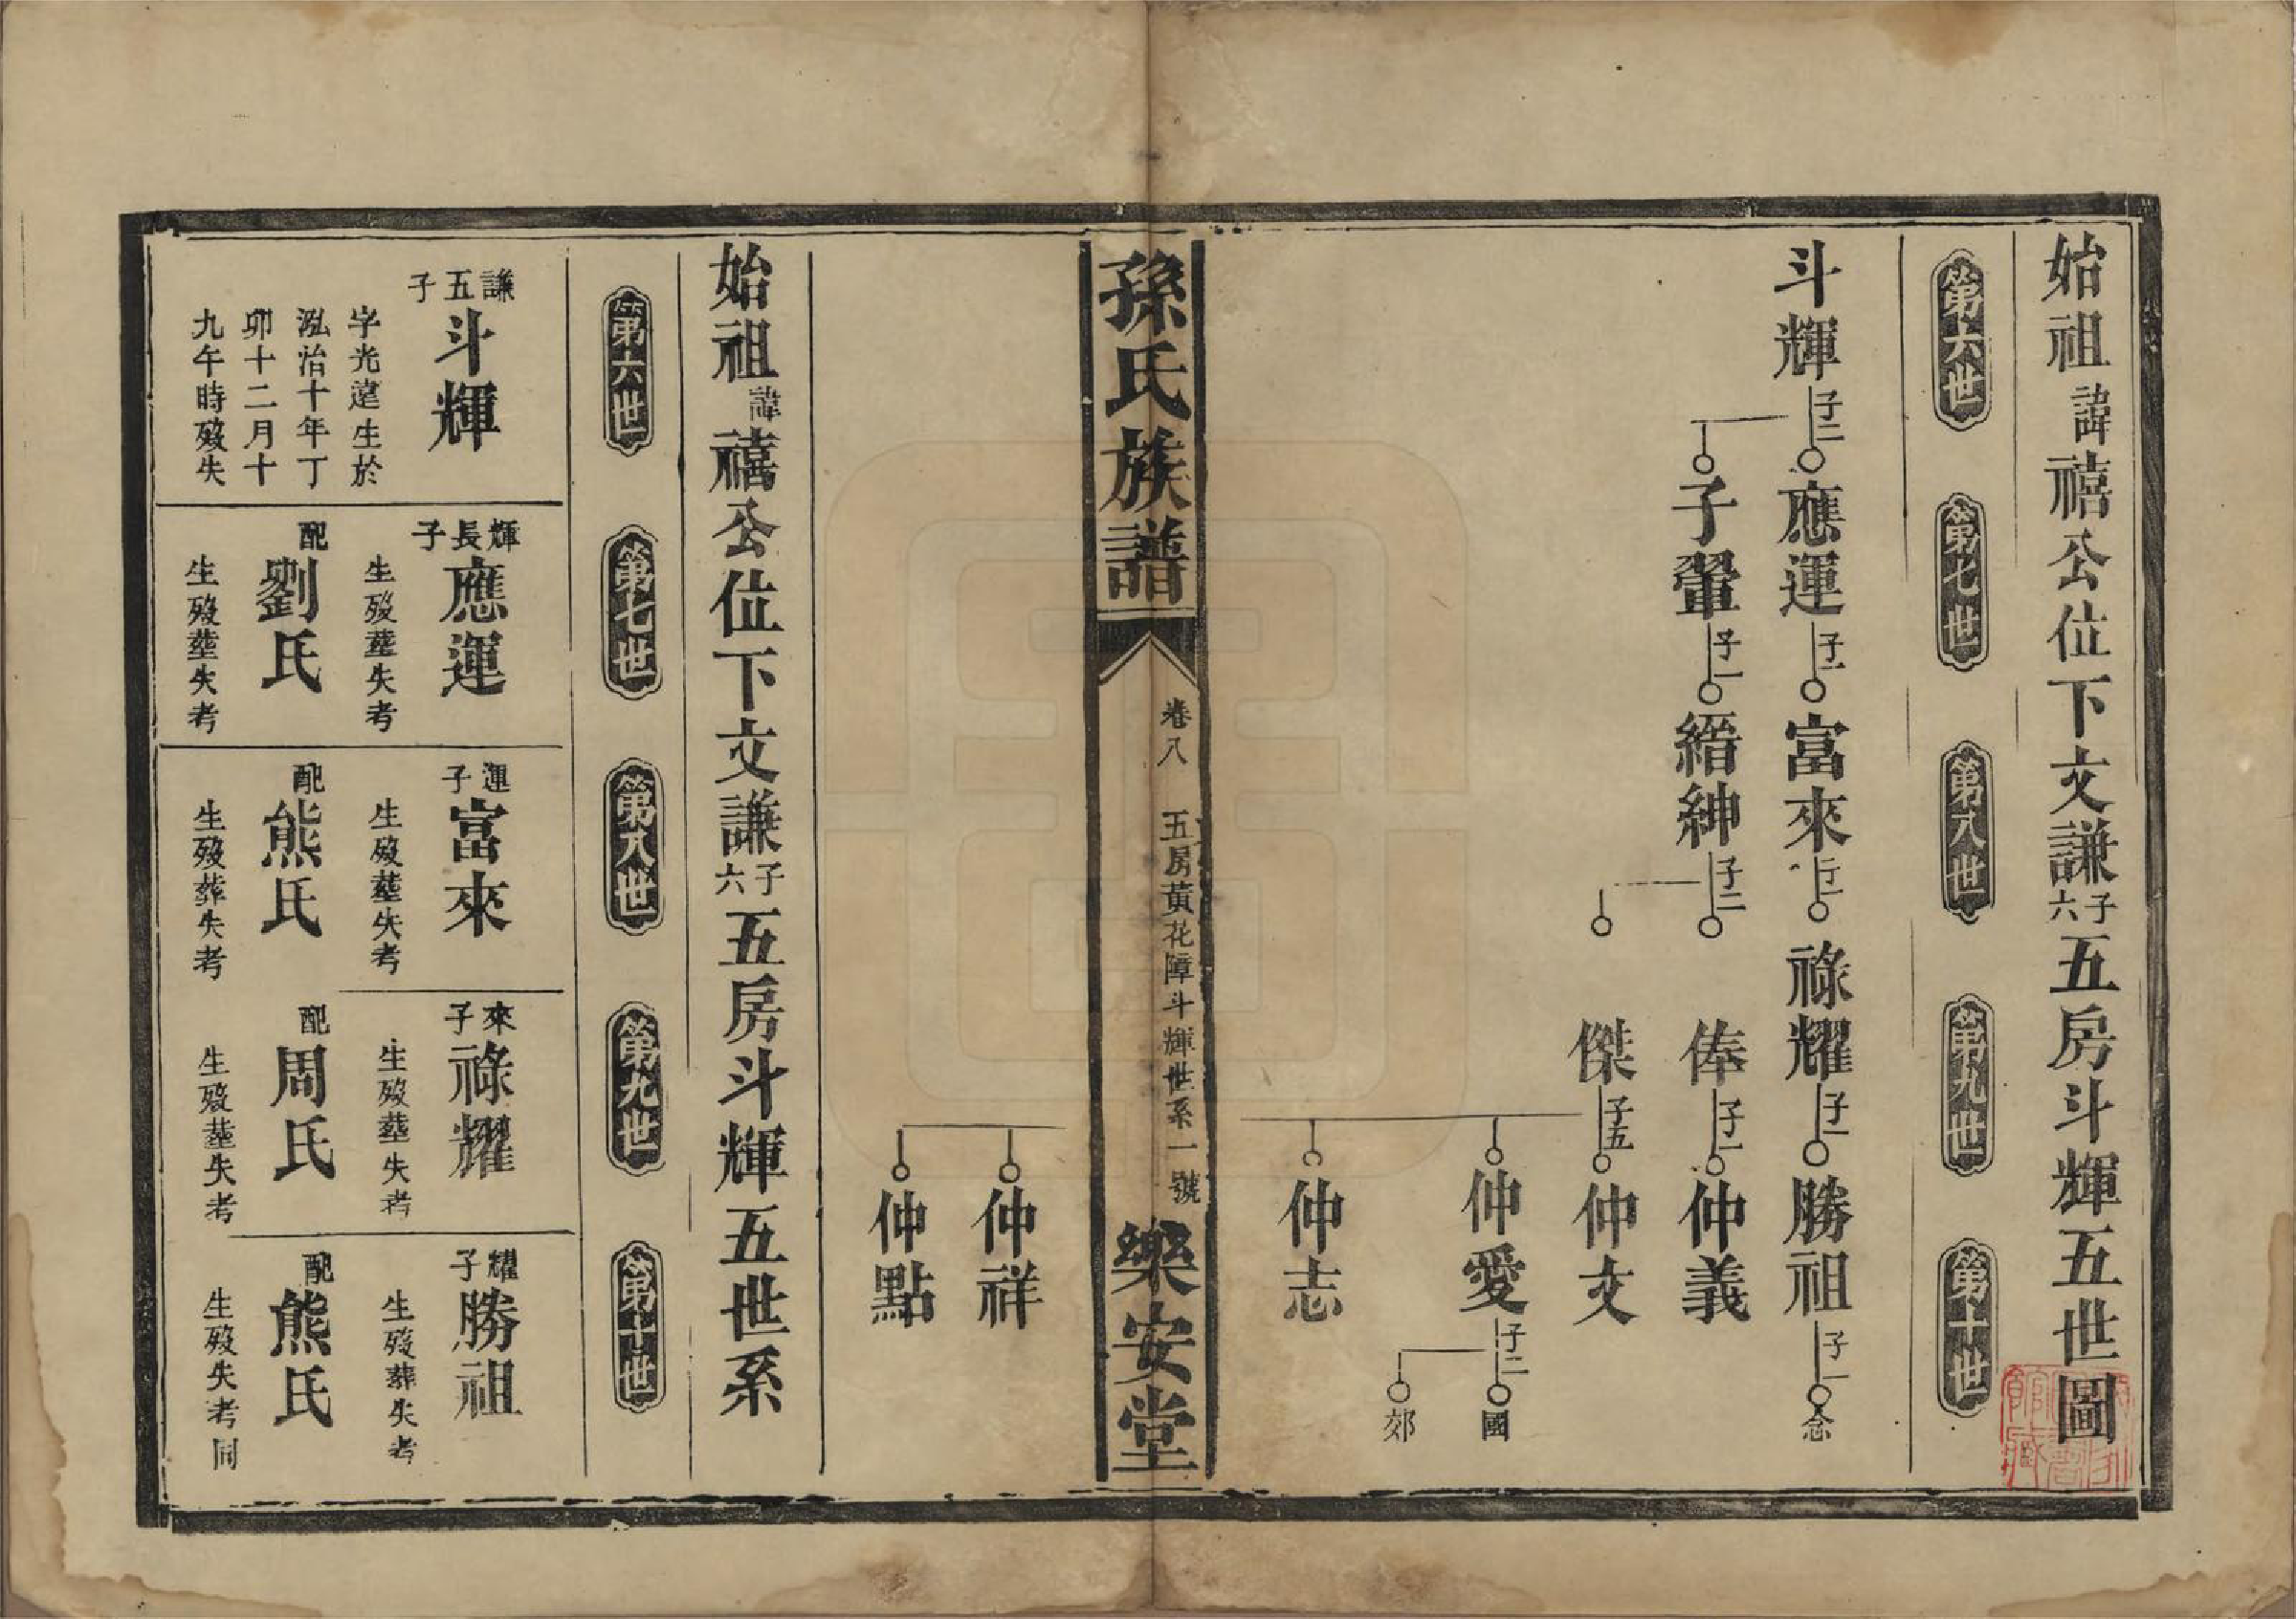 始祖諱禧公位下文謙子六五房斗輝五世圖
第六世
第七世
第八世
第九世
第十世
斗輝子二
應運子一
富來行一
祿耀子一
勝祖子一
念
子翬子一
縉紳子二
俸子一
仲義
傑子五
仲文
仲愛子二
國
郊
仲志
孫氏族譜
卷八
五房黃花障斗輝世系一號
樂安堂
仲祥
仲點
始祖諱禧公位下文謙子六五房斗輝五世系
第六世
第七世
第八世
第九世
第十世
謙五子
斗輝
字光遠生於
泓治十年丁
卯十二月十
九午時歿失
輝長子
應運
生歿塟失考
配
劉氏
生歿塟失考
運子
富來
生歿塟失考
配
熊氏
生歿葬失考
來子
祿耀
生歿塟失考
配
周氏
生歿塟失考
耀子
勝祖
生歿葬失考
配
熊氏
生歿失考同